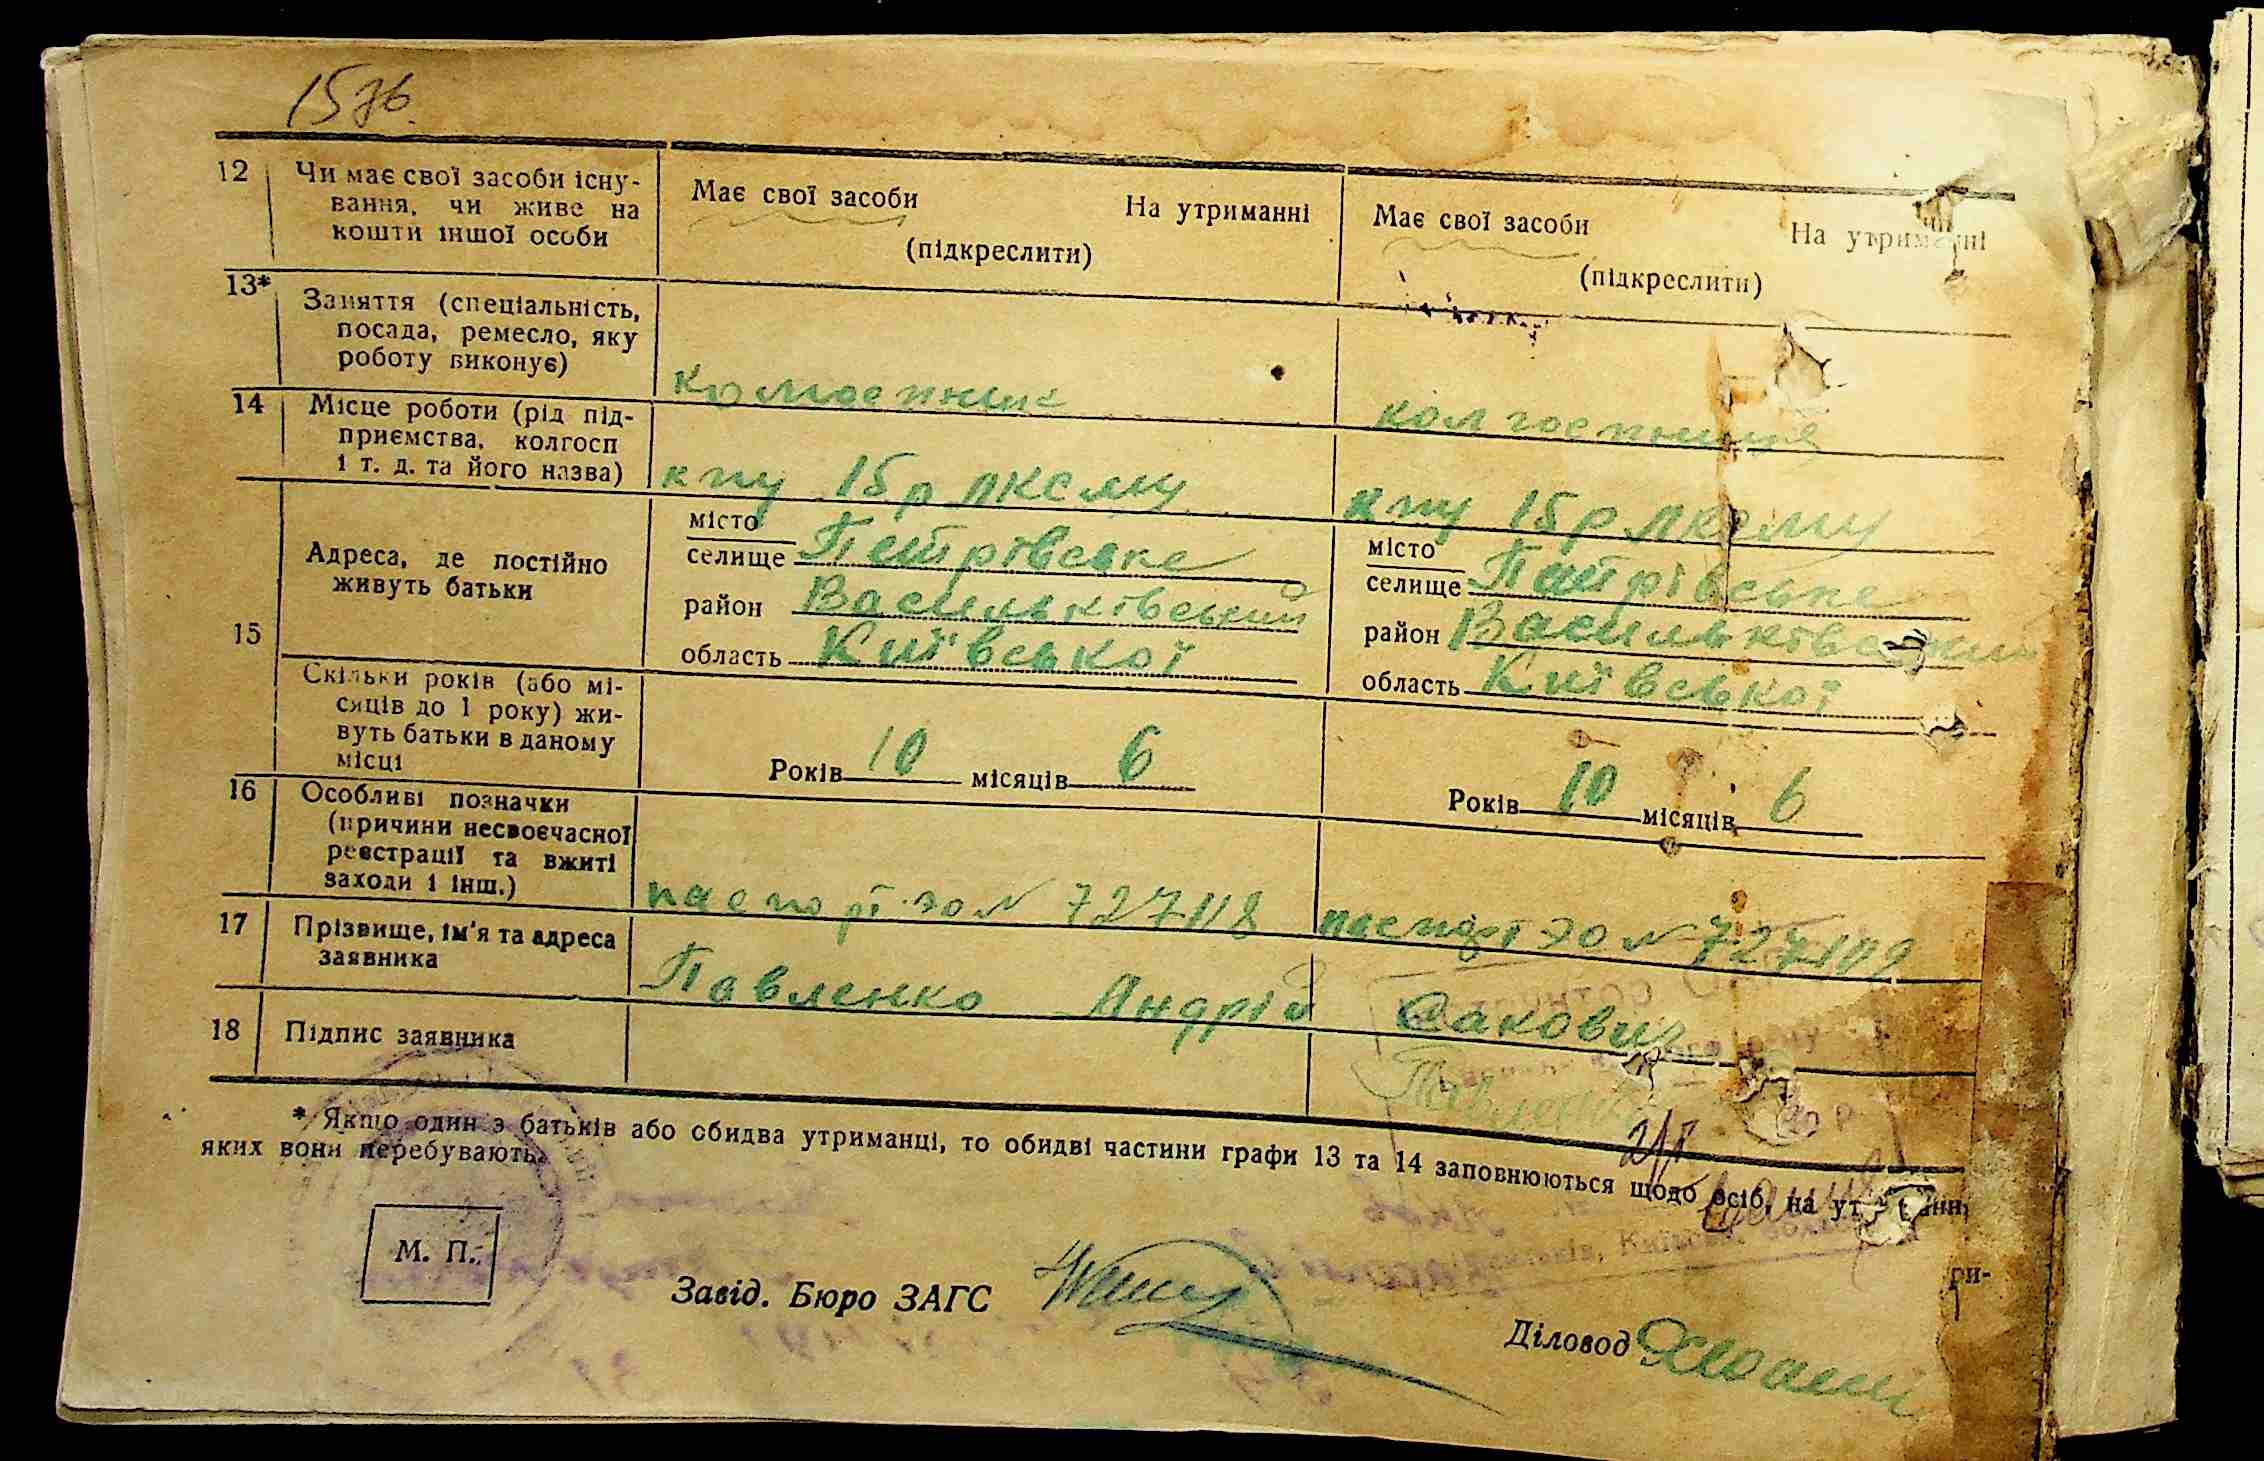 157б.
12 Чи має свої засоби існу-
вання, чи живе на
кошти іншої особи
Має свої засоби На утриманні
(підкреслити)
Має свої засоби На утриманні
(підкреслити)
13* Заняття (спеціальність,
посада, ремесло, яку
роботу виконує)
колгоспник
колгоспниця
14 Місце роботи (рід під-
приємства, колгосп
і т. д. та його назва)
кпу 15р ЛКСМУ
кпу 15р ЛКСМУ
15 Адреса, де постійно
живуть батьки
місто
селище Петрівське
район Васильківський
область Київської
місто
селище Петрівське
район Васильківський
область Київської
Скільки років (або мі-
сяців до 1 року) жи-
вуть батьки в даному
місці
Років 10 місяців 6
Років 10 місяців 6
16 Особливі позначки
(причини несвоєчасної
реєстрації та вжиті
заходи і інш.)
паспорт ЭО № 727118
паспорт ЭО № 727109
17 Прізвище, ім'я та адреса
заявника
Павленко Андрій Сакович
18 Підпис заявника
Павленко
* Якщо один з батьків або обидва утриманці, то обидві частини графи 13 та 14 заповнюються щодо осіб, на ут
ри-
яких вони перебувають.
М. П.
Завід. Бюро ЗАГС
Діловод